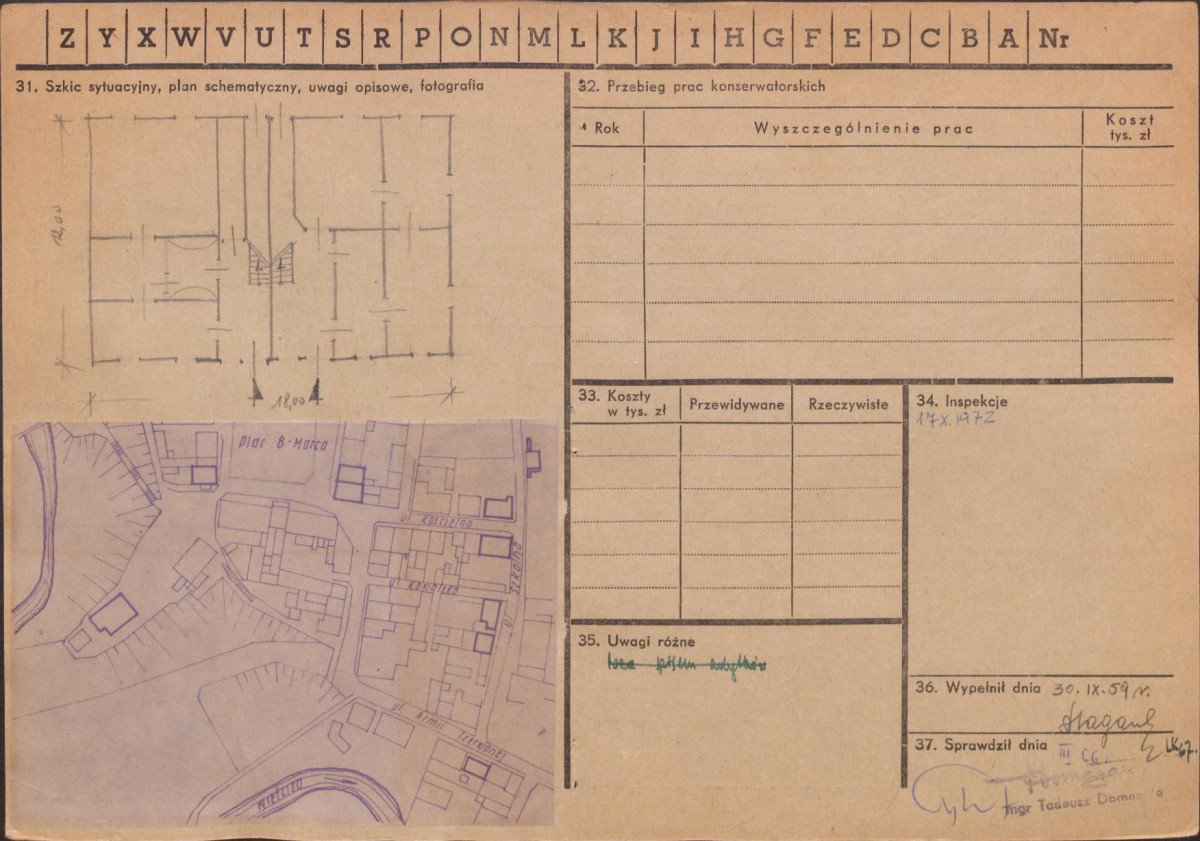 Z Y X W V U T S R P O N M L K J I H G F E D C B A Nr
31. Szkic sytuacyjny, plan schematyczny, uwagi opisowe, fotografia
12,00
18,00
Plac 8-Marca
ul. Kościelna
ul.
ul. Szkolna
ul. Armii Czerwonej
32. Przebieg prac konserwatorskich
Rok
Wyszczególnienie prac
Koszt
tys. zł
33. Koszty
w tys. zł
Przewidywane
Rzeczywiste
34. Inspekcje
17 X. 1972
35. Uwagi różne
36. Wypełnił dnia 30. IX. 59 r.
37. Sprawdził dnia
III 66
LK67.
mgr Tadeusz